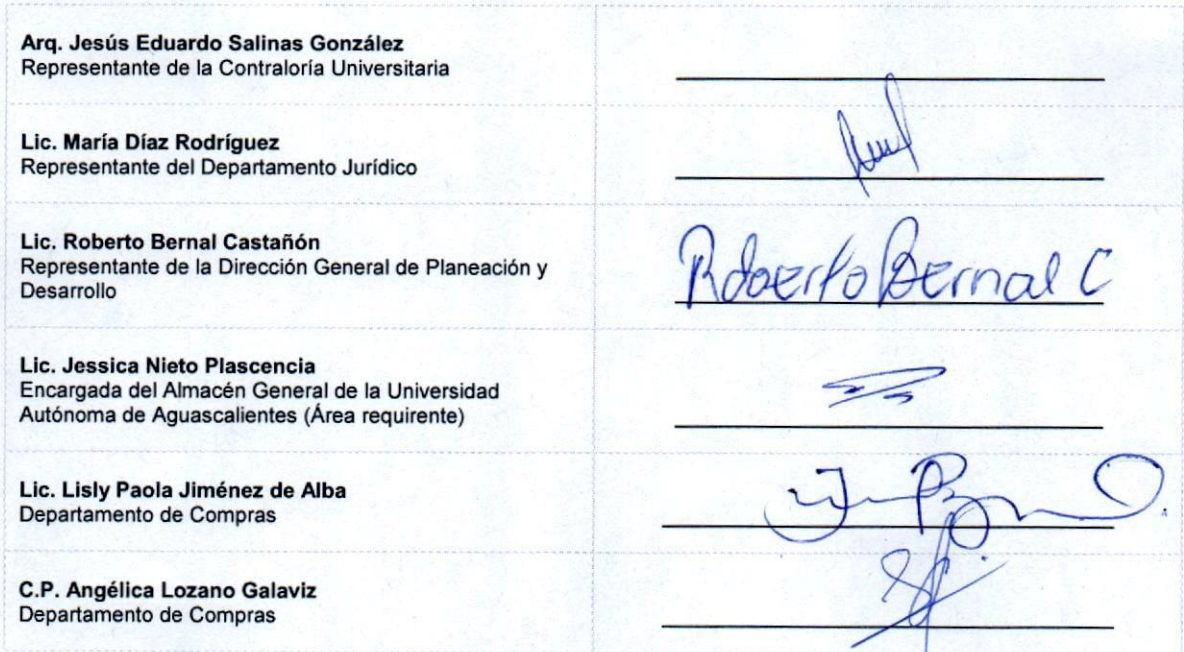 Arq. Jesús Eduardo Salinas González
Representante de la Contraloría Universitaria
Lic. María Díaz Rodríguez
Representante del Departamento Jurídico
Lic. Roberto Bernal Castañón
Representante de la Dirección General de Planeación y
Desarrollo
Roberto Bernal C
Lic. Jessica Nieto Plascencia
Encargada del Almacén General de la Universidad
Autónoma de Aguascalientes (Área requirente)
Lic. Lisly Paola Jiménez de Alba
Departamento de Compras
C.P. Angélica Lozano Galaviz
Departamento de Compras